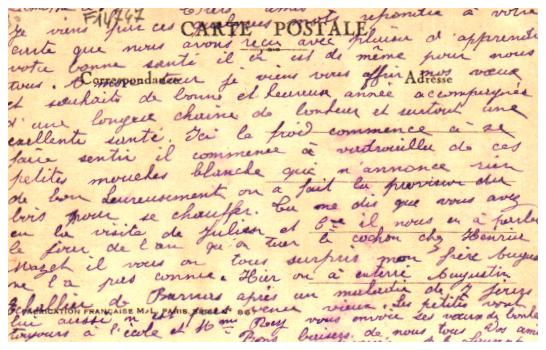 F14747
Chers amis
Je viens par ces quelques mots repondre à votre
CARTE POSTALE
carte que nous avons reçu avec plaisir d'apprendre
votre bonne santé il en est de même pour nous
tous. je viens vous offrir mes vœux
Correspondance
Adresse
et souhaits de bonne et heureuse année accompagnés
d'une longue chaine de bonheur et surtout une
exellente santé. Ici la froid commence à se
faire sentir il commence à vadrouiller de ces
petites mouches blanche qui n'annonce rien
de bon heureusement on a fait la provision du
bois pour se chauffer. Tu me dis que vous avez
eu la visite de Julien et il nous en a parler
le jour de l'an qu'on tuer le cochon chez Henriue
Mazet il vous on tous surpris mon frère
ne l'a pas connue. Hier on à enterré Augustin
de après un maladie de 7 jours
FABRICATION FRANÇAISE M.L. PARIS
lui aussi vieux. Les petits vont
toujours à l'école et Mme Rey vous envoie Les vœux du bonheur
Bons baisers de nous tous Vos amis